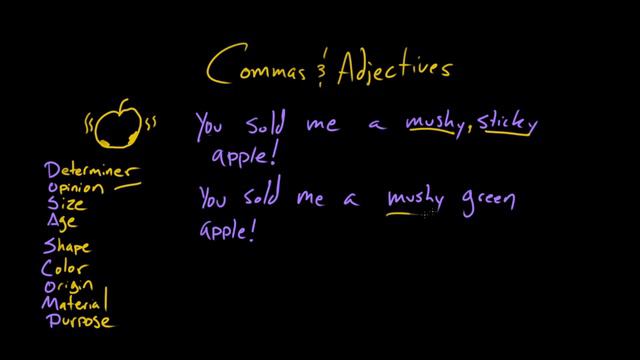 Commas & Adjectives
You sold me a mushy, sticky
apple!
You sold me a mushy green
apple!
Determiner
Opinion
Size
Age
Shape
Color
Origin
Material
Purpose